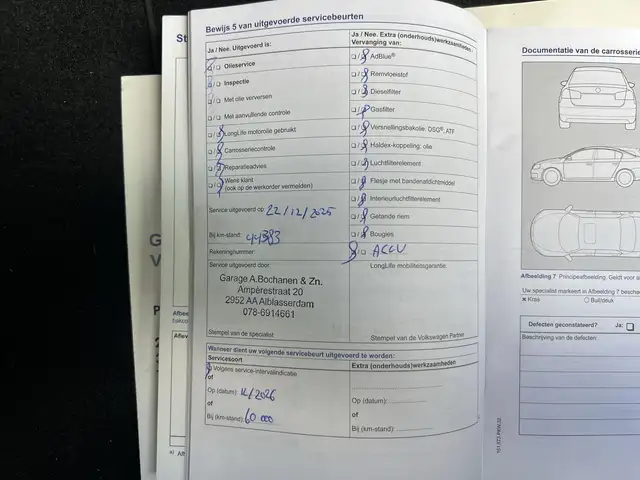 Bewijs 5 van uitgevoerde servicebeurten
Ja / Nee. Uitgevoerd is:
Olieservice
Inspectie
Met olie verversen
Met aanvullende controle
LongLife motorolie gebruikt
Carrosseriecontrole
Reparatieadvies
Wens klant
(ook op de werkorder vermelden)
Service uitgevoerd op: 22/12/2025
Bij km-stand:
Rekeningnummer:
Service uitgevoerd door:
Garage A.Bochanen & Zn.
Ampèrestraat 20
2952 AA Alblasserdam
078-6914661
Stempel van de specialist
Ja / Nee. Extra (onderhouds)werkzaamheden:
Vervanging van:
AdBlue®
Remvloeistof
Dieselfilter
Gasfilter
Versnellingsbakolie: DSG®, ATF
Haldex-koppeling: olie
Luchtfilterelement
Flesje met bandenafdichtmiddel
Interieurluchtfilterelement
Getande riem
Bougies
ACCU
LongLife mobiliteitsgarantie:
Stempel van de Volkswagen Partner
Wanneer dient uw volgende servicebeurt uitgevoerd te worden:
Servicesoort
Volgens service-intervalindicatie
of
Op (datum): 12/2026
of
Bij (km-stand): 60 000
Extra (onderhouds)werkzaamheden
Op (datum):
of
Bij (km-stand):
Documentatie van de carrosserie
Afbeelding 7 Principeafbeelding. Geldt voor a
Uw specialist markeert in Afbeelding 7 bescha
× Kras
○ Buil/deuk
Defecten geconstateerd? Ja:
Beschrijving van de defecten: